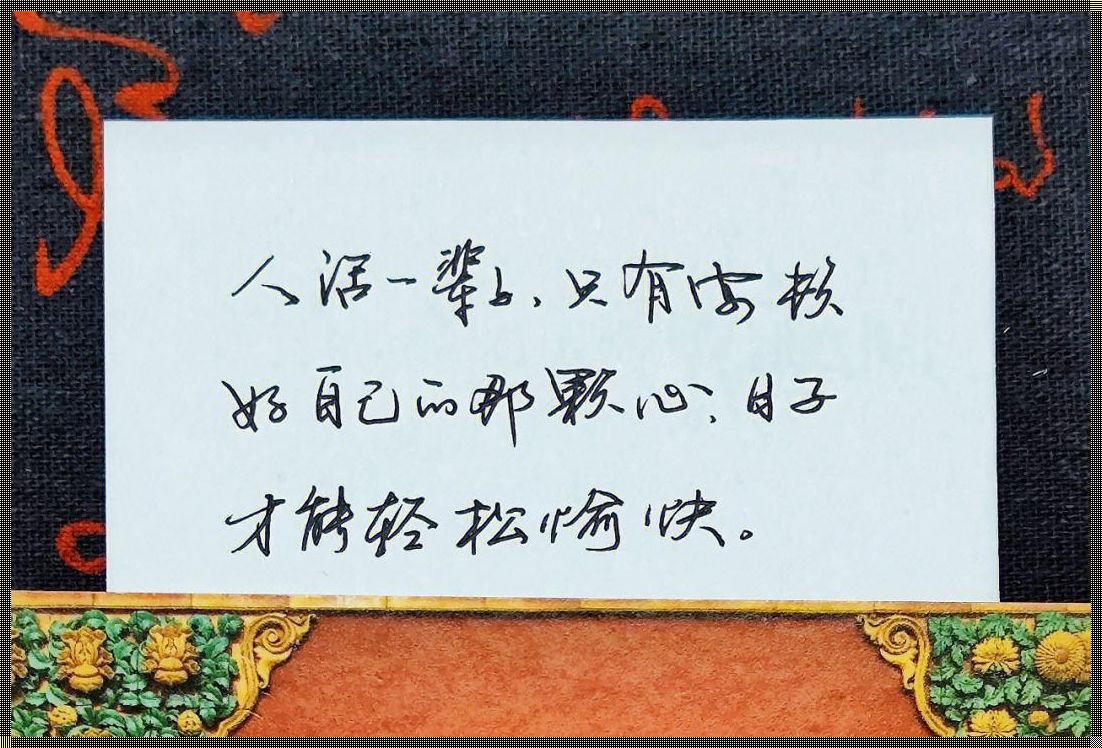 人活一辈子，只有安顿
好自己的那颗心，日子
才能轻松愉快。